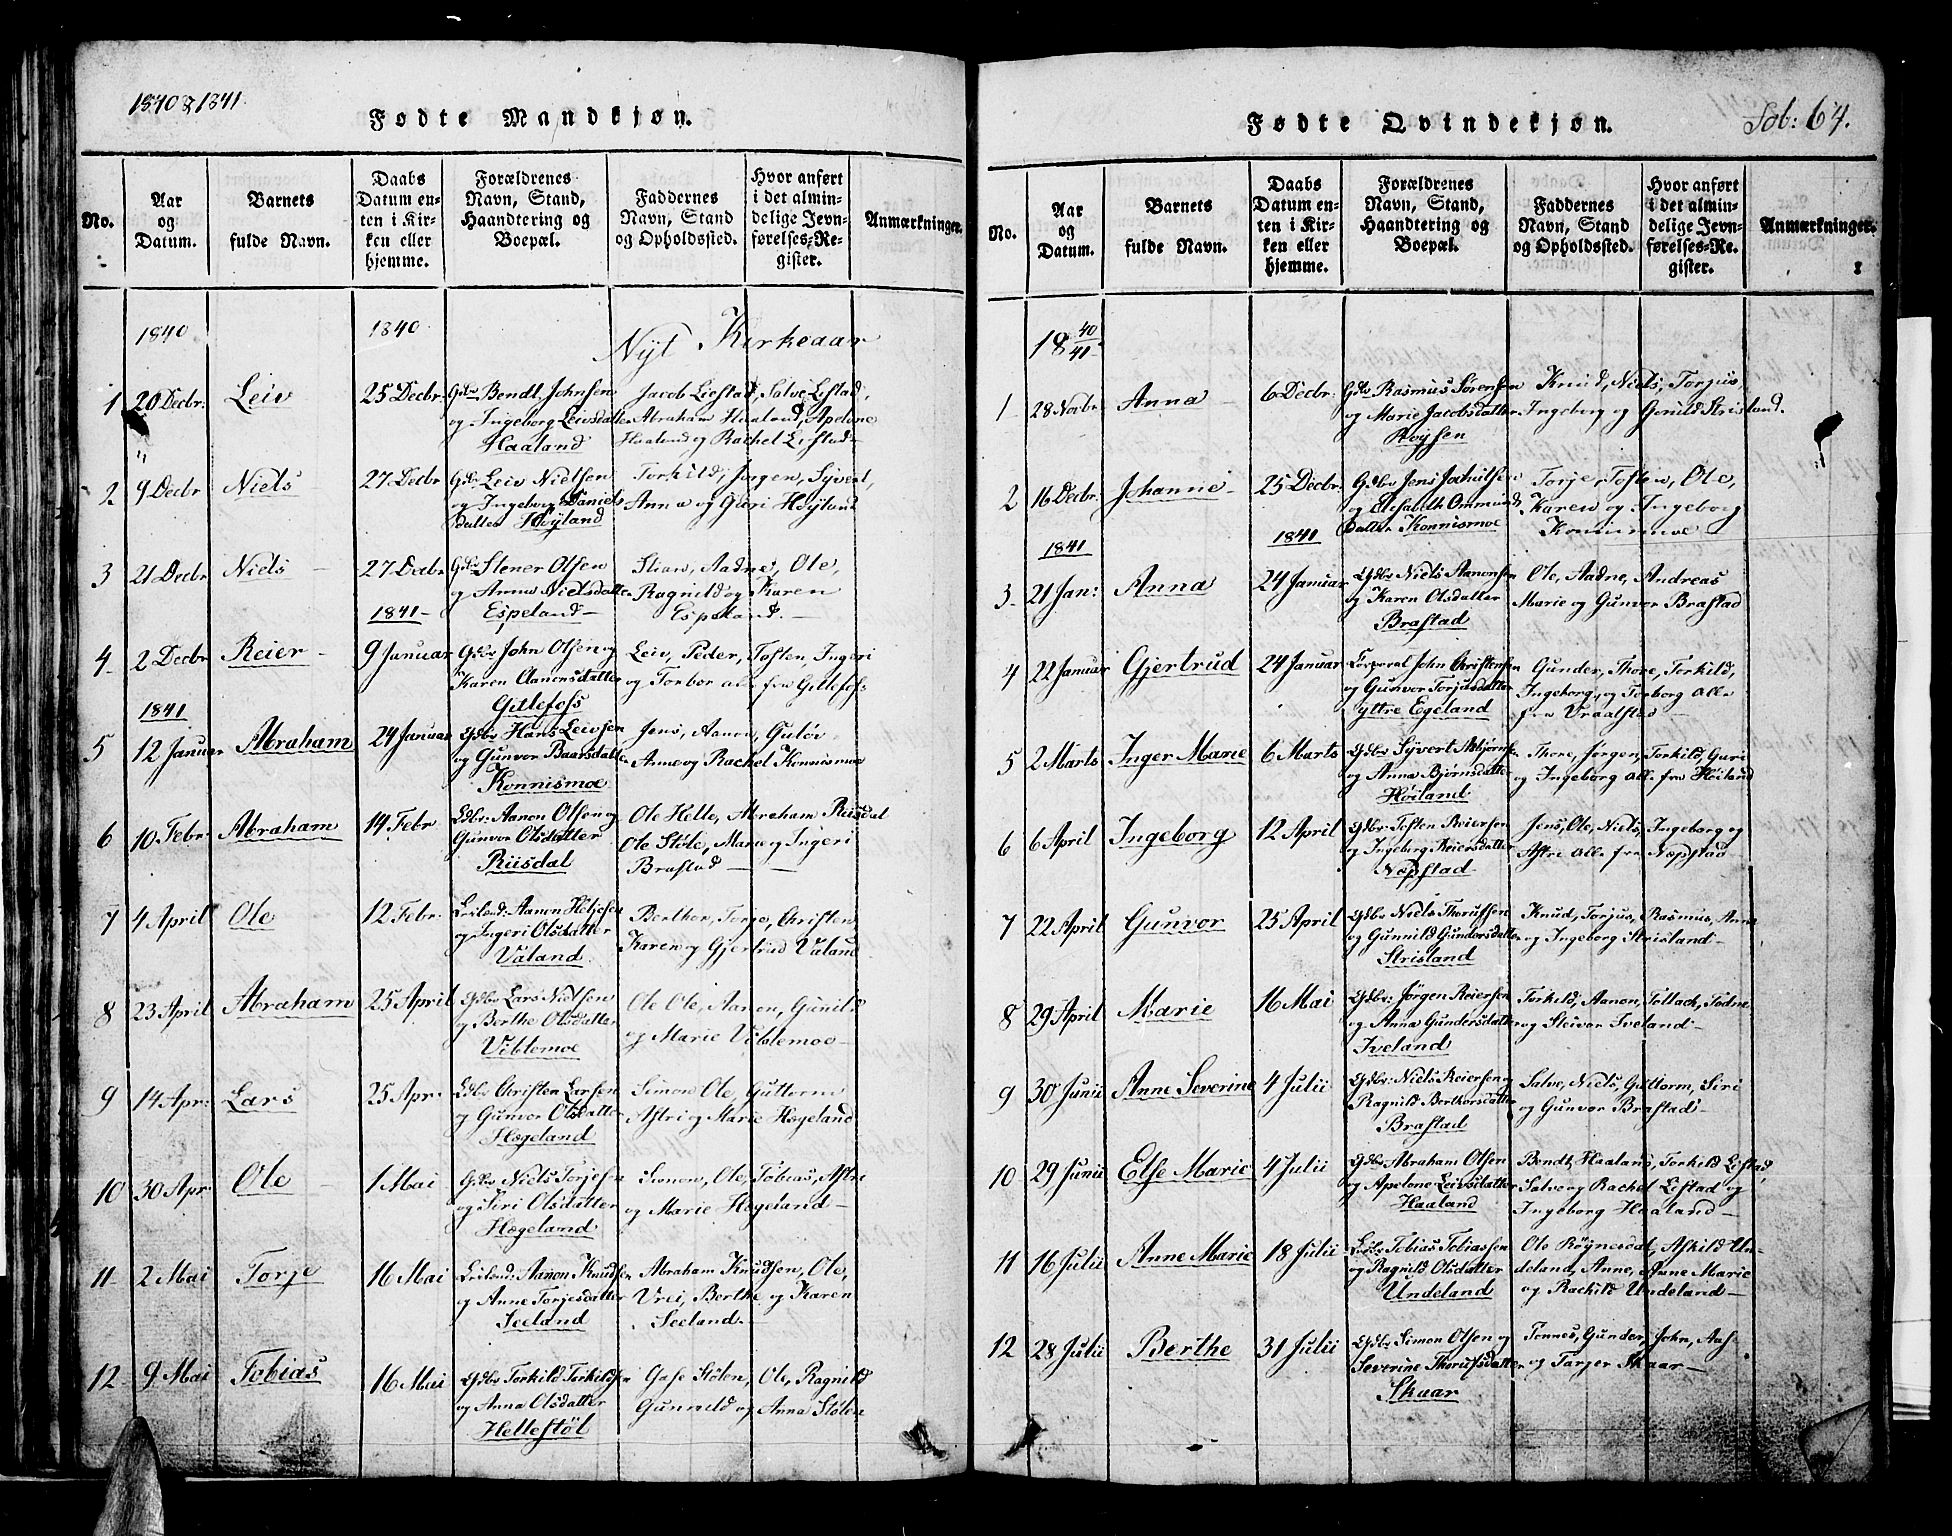 1840 & 1841.
Fødte Mandkjøn.
No.
Aar
og
Datum.
Barnets
fulde Navn.
Daabs
Datum en-
ten i Kir-
ken eller
hjemme.
Forældrenes
Navn, Stand,
Haandtering og
Boepæl.
Faddernes
Navn, Stand
og Opholdssted.
Hvor anført
i det almin-
delige Jevn-
førelses-Re-
gister.
Anmærkninger.
1840
1840
Nyt Kirkeaar
1 20 Decbr: Leiv 25 Decbr:
Gdbr Bendt Johnsen
og Ingeborg Leivsdatter
Haaland
Jacob Liestad, Salve Liestad,
Abraham Haaland, Apelone
Haaland og Rachel Liestad
2 9 Decbr Niels 27 Decbr
Gdbr Leiv Nielsen
og Ingeborg Daniels
datter Høyland
Torkild, Jørgen, Syvert,
Anna og Guri Høyland
3 21 Decbr Niels 27 Decbr
1841
Gdbr Stener Olsen
og Anna Nielsdatter
Espeland
Stian, Aadne, Ole,
Ragnild og Karen
Espeland.
4 2 Decbr Reier 9 Januar
Gdbr John Olsen og
Karen Aanonsdatter
Gillefoss
Leiv, Peder, Tosten, Ingeri
og Torbor alle fra Gillefoss
1841
5 12 Januar Abraham 24 Januar
Gdbr Hans Leivsen
og Gunvor Baarsdatter
Konnismoe
Jens, Aanon, Guløv
Anne og Rachel Konnismoe
6 10 Febr: Abraham 14 Febr
Gdbr: Aanon Olsen og
Gunvor Olsdatter
Riisdal
Ole Helle, Abraham Riisdal
Ole Støle, Marie og Ingeri
Brastad
7 4 April Ole 12 Febr:
Leilend: Aanon
og Ingeri Olsdatter
Valand
Berthor, Torje, Christen,
Karen og Gjertrud Valand
8 23 April Abraham 25 April
Gdbr Lars Nielsen
og Berthe Olsdatter
Viblemoe
Ole Ole, Aanon, Gunild
og Marie Viblemoe
9 14 Apr: Lars 25 Apr.
Gdbr Christen Larsen
og Gunvor Olsdatter
Hægeland
Simon Ole, Guttorm
Astri og Marie Hægeland
10 30 Apr: Ole 1 Mai
Gdbr Niels Torjesen
og Siri Olsdatter
Hægeland
Simon, Ole, Tobias, Astri
og Marie Hægeland
11 2 Mai Torje 16 Mai
Leilend: Aanon Knudsen
og Anne Torjesdatter
Seeland
Abraham Knudsen, Ole,
Vrei, Berthe og Karen
Seeland.
12 9 Mai Tobias 16 Mai
Gdbr Torkild Torkildsen
og Anna Olsdatter
Hellestøl
Gase Stølen, Ole, Ragnild
Gunnild og Anna Stølen
Fødte Qvindekjøn.
Fol: 64.
No.
Aar
og
Datum.
Barnets
fulde Navn.
Daabs
Datum en-
ten i Kir-
ken eller
hjemme.
Forældrenes
Navn, Stand,
Haandtering og
Boepæl.
Faddernes
Navn, Stand
og Opholdssted.
Hvor anført
i det almin-
delige Jevn-
førelses-Re-
gister.
Anmærkninger.
18 40/41
1 28 Novbr Anna 6 Decbr:
Gdbr Rasmus Sørensen
og Marie Jacobsdatter
Røysen
Knud, Niels, Torjus,
Ingeborg og Gunild Strisland.
2 16 Decbr: Johanne 25 Decbr:
Gdbr Jens
og Elisabeth Ommund
datter Konnismoe
Torje, Tosten, Ole,
Karen og Ingeborg
Konnismoe
1841
1841
3 21 Jan: Anna 24 Januar
Gdbr Niels Aanonsen
og Karen Olsdatter
Brastad
Ole, Aadne, Andreas
Marie og Gunvor Brastad
4 22 Januar Gjertrud 24 Januar
Corporal John Christensen
og Gunvor Torjusdatter
yttre Egeland
Gunder, Thore, Torkild,
Ingeborg, og Torborg alle
fra Vraalstad
5 2 Marts Inger Marie 6 Marts
Gdbr Syvert Asbjørns
og Anna Bjørnsdatter
Høiland
Thore, Jørgen, Torkild, Guri
og Ingeborg alle fra Høiland
6 6 April Ingeborg 12 April
Gdbr: Tosten Reiersen
og Ingeborg Reiersdatter
Nøpstad
Jens, Ole, Niels, Ingeborg og
Astri alle fra Nøpstad
7 22 April Gunvor 25 April
Gdbr Niels Thorufsen
og Gunnild Gundersdatter
Strisland
Knud, Torjus, Rasmus, Anna
og Ingeborg Strisland
8 29 April Marie 16 Mai
Gdbr: Jørgen Reiersen
og Anna Gundersdatter
Iveland
Torkild, Aanon, Tollack,
og Steivor Iveland
9 30 Junii Anne Severine 4 Julii
Gdbr: Niels Reiersen og
Ragnild Berthorsdatter
Brastad
Salve, Niels, Guttorm, Siri
og Gunvor Brastad
10 29 Junii Else Marie 4 Julii
Gdbr Abraham Olsen
og Apelone Leivsdatter
Haaland
Bendt Haaland, Torkild Liestad,
Salve og Rachel Liestad og
Ingeborg Haaland
11 16 Julii Anne Marie 18 Julii
Gdbr Tobias Tobiassen
og Ragnild Olsdatter
Undeland
Ole Røynesdal, Askild Un-
deland, Anne, Anne Marie
og Rachild Undeland
12 28 Julii Berthe 31 Julii
Gdbr Simon Olsen og
Severine Thorufsdatter
Skaar
Tønnes, Gunder, John, Aas-
og Tarjer Skaar